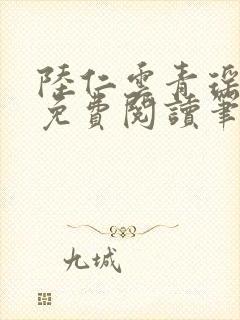 陸仁雲青瑶
免費閱讀筆
九城